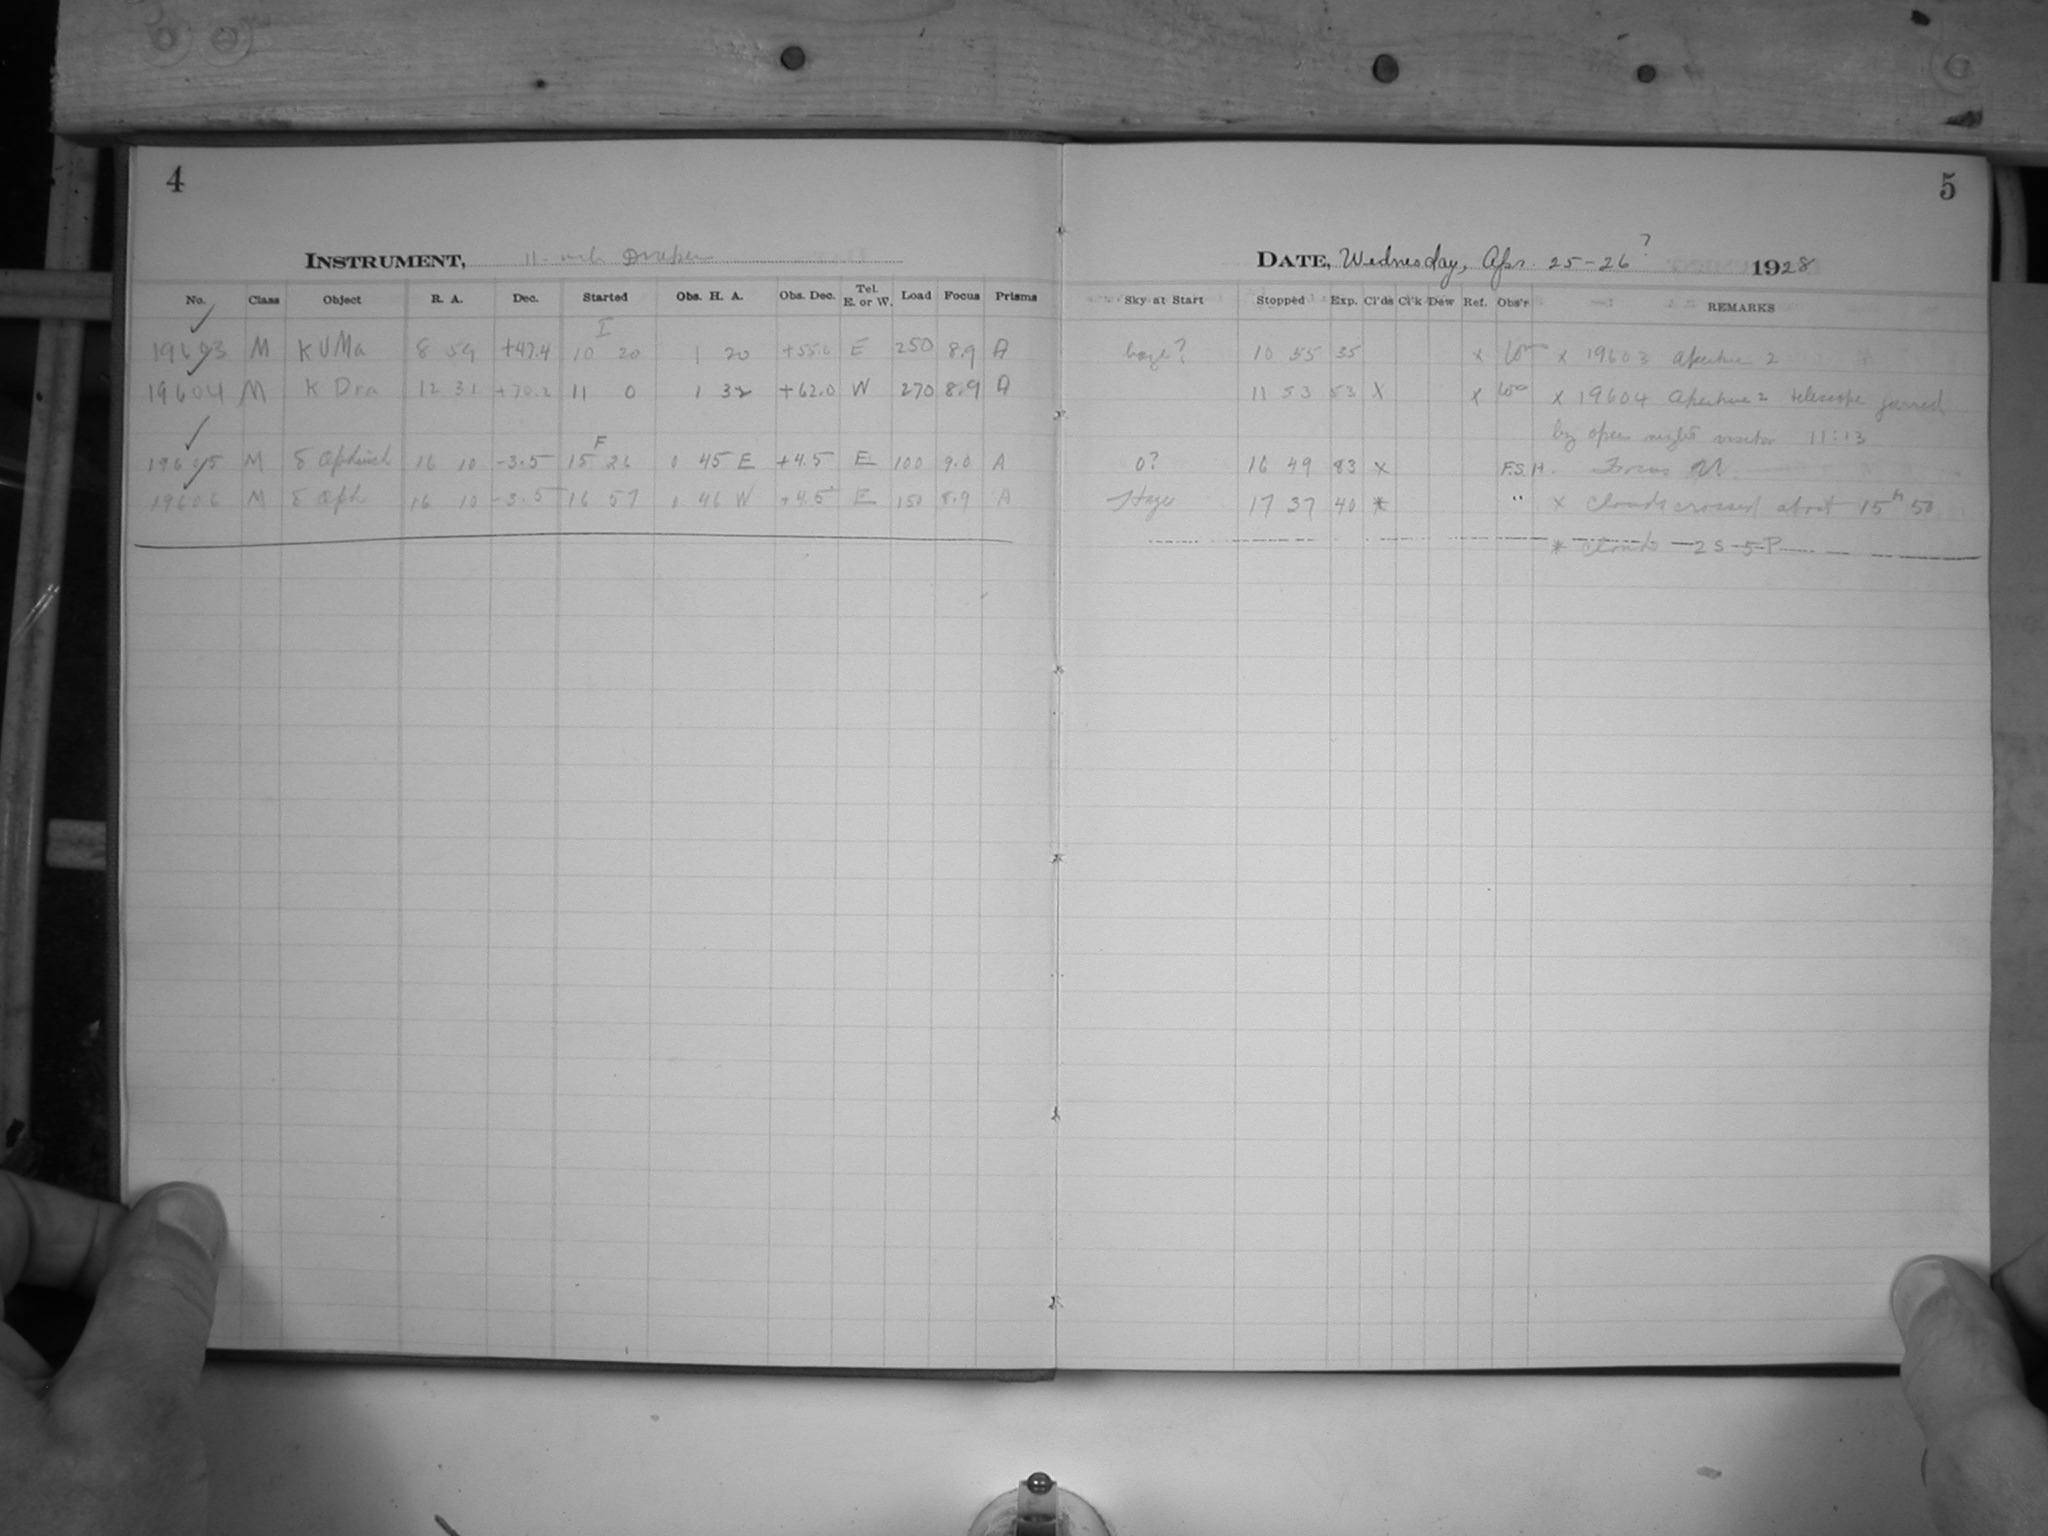 4
INSTRUMENT, 11-inch Draper
No. Class Object R. A. Dec. Started Obs. H. A. Obs. Dec. Tel. E. or W. Load Focus Prisms
I
19603 M K UMa 8 59 +47.4 10 20 1 20 +55.6 E 250 8.9 A
19604 M K Dra 12 31 +70.2 11 0 1 32 +62.0 W 270 8.9 A
F
19605 M δ Ophiuch 16 10 -3.5 15 26 0 45 E +4.5 E 100 9.0 A
19606 M δ Oph 16 10 -3.5 16 57 0 46 W +4.5 E 150 8.9 A
5
DATE, Wednesday, Apr. 25-26? 1928
Sky at Start Stopped Exp. Cl'ds Cl'k Dew Ref. Obs'r REMARKS
haze? 10 55 35 x x 19603 Aperture 2
11 53 53 X x x 19604 Aperture 2 telescope jarred
by open night visitor 11:13
0? 16 49 83 x F.S.H. Focus
Haze 17 37 40 * " x Clouds crossed about 15h 50
* Clouds 2S-5P